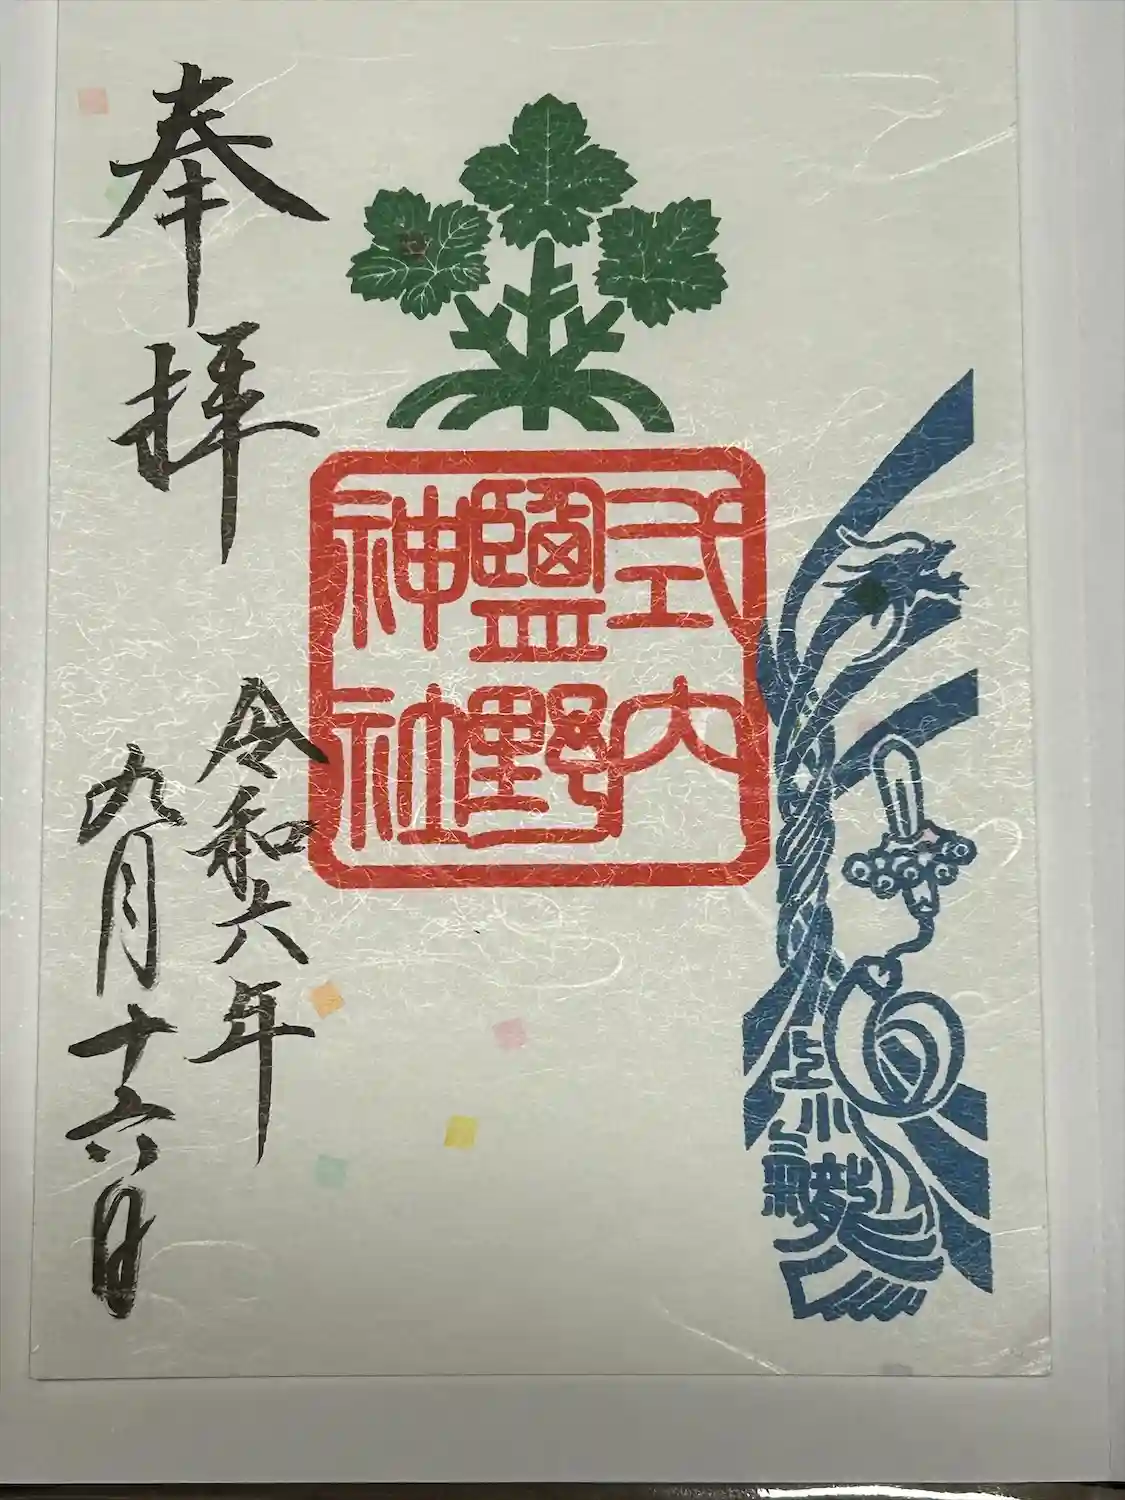 式内
鹽野
神社
奉拝
令和六年
九月十六日